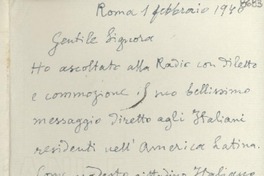 Roma 1 febbraio 1948
Gentile Signora
Ho ascoltato alla Radio con diletto
e commozione il suo bellissimo
messaggio diretto agli Italiani
residenti nell'America Latina.
Come modesto cittadino Italiano